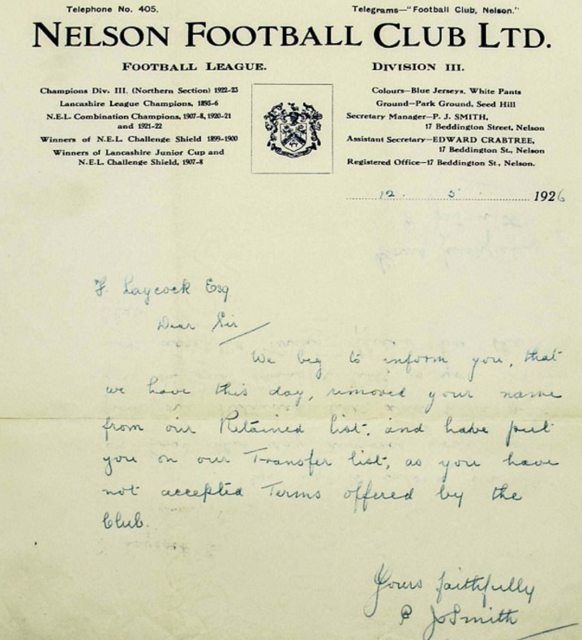 Telephone No. 405.
Telegrams—"Football Club, Nelson."
NELSON FOOTBALL CLUB LTD.
FOOTBALL LEAGUE.
DIVISION III.
Champions Div. III. (Northern Section) 1922-23
Lancashire League Champions, 1895-6
N.E.L. Combination Champions, 1907-8, 1920-21
and 1921-22
Winners of N.E.L. Challenge Shield 1899-1900
Winners of Lancashire Junior Cup and
N.E.L. Challenge Shield, 1907-8
Colours—Blue Jerseys, White Pants
Ground—Park Ground, Seed Hill
Secretary Manager—P. J. SMITH,
17 Beddington Street, Nelson
Assistant Secretary—EDWARD CRABTREE,
17 Beddington St., Nelson
Registered Office—17 Beddington St., Nelson.
12 5 1926
F. Laycock Esq
Dear Sir
We beg to inform you, that
we have this day, removed your name
from our Retained list, and have put
you on our Transfer list, as you have
not accepted Terms offered by the
Club.
Yours faithfully
P JoSmith